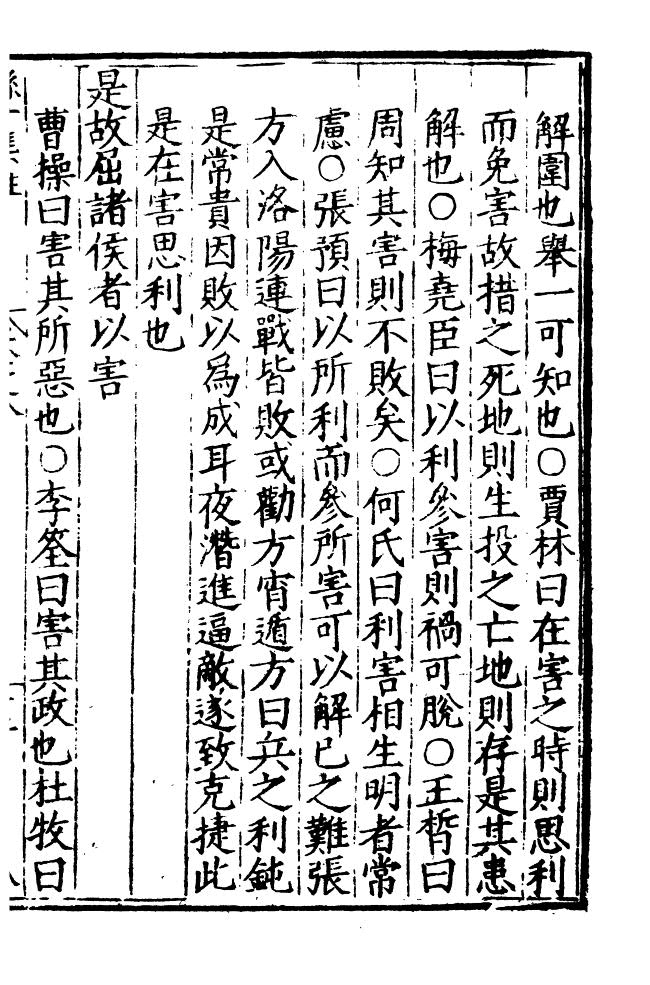 解圍也舉一可知也○賈林曰在害之時則思利
而免害故措之死地則生投之亡地則存是其患
解也○梅堯臣曰以利參害則禍可脫○王晳曰
周知其害則不敗矣○何氏曰利害相生明者常
慮○張預曰以所利而參所害可以解已之難張
方入洛陽連戰皆敗或勸方宵遁方曰兵之利鈍
是常貴因敗以爲成耳夜潛進逼敵遂致克捷此
是在害思利也
是故屈諸侯者以害
曹操曰害其所惡也○李筌曰害其政也杜牧曰